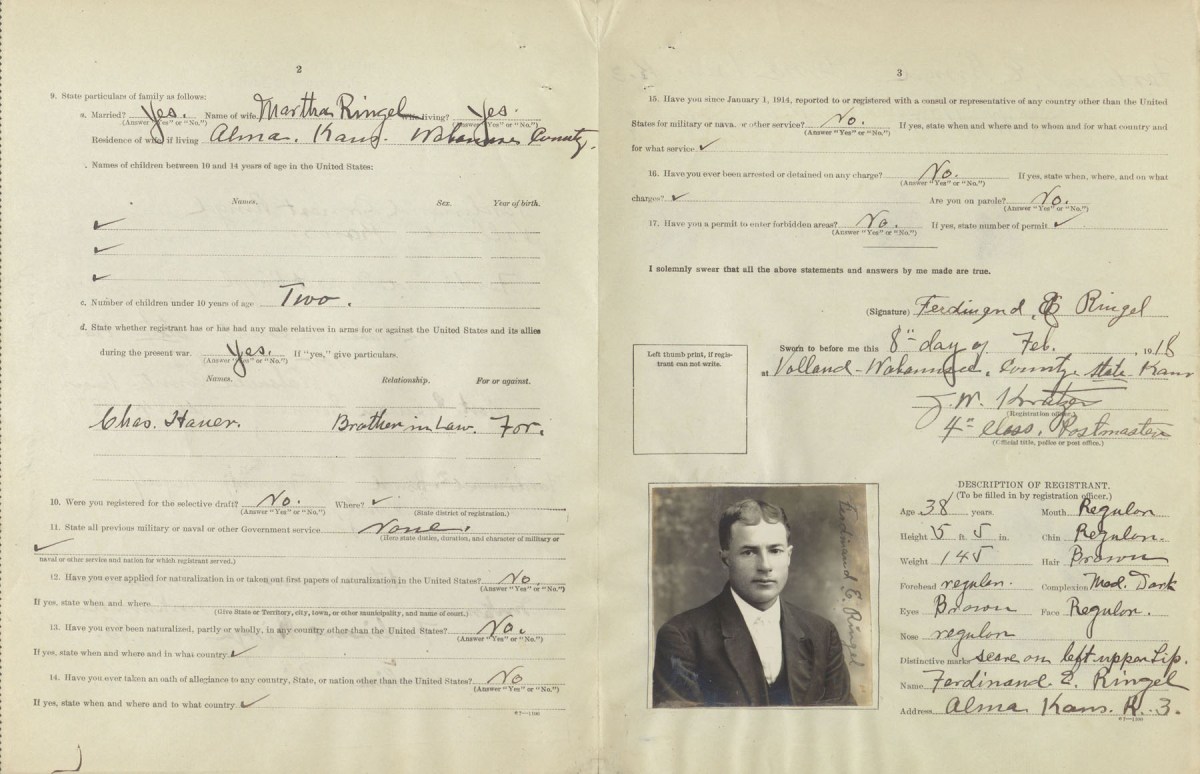 2
9. State particulars of family as follows:
a. Married? Yes. Name of wife Martha Ringel Wife living? Yes.
(Answer "Yes" or "No.") (Answer "Yes" or "No.")
Residence of wife if living Alma. Kans. Wabaunsee County.
. Names of children between 10 and 14 years of age in the United States:
Names. Sex. Year of birth.
✓
✓
✓
c. Number of children under 10 years of age Two.
d. State whether registrant has or has had any male relatives in arms for or against the United States and its allies
during the present war. Yes. If "yes," give particulars.
(Answer "Yes" or "No.")
Names. Relationship. For or against.
Chas. Hauer. Brother in Law. For.
10. Were you registered for the selective draft? No. Where? ✓
(Answer "Yes" or "No.") (State district of registration.)
11. State all previous military or naval or other Government service None.
(Here state duties, duration, and character of military or
✓
naval or other service and nation for which registrant served.)
12. Have you ever applied for naturalization in or taken out first papers of naturalization in the United States? No.
(Answer "Yes" or "No.")
If yes, state when, and where
(Give State or Territory, city, town, or other municipality, and name of court.)
13. Have you ever been naturalized, partly or wholly, in any country other than the United States? No.
(Answer "Yes" or "No.")
If yes, state when and where and in what country. ✓
14. Have you ever taken an oath of allegiance to any country, State, or nation other than the United States? No
(Answer "Yes" or "No.")
If yes, state when and where and to what country. ✓
3
15. Have you since January 1, 1914, reported to or registered with a consul or representative of any country other than the United
States for military or nava. or other service? No. If yes, state when and where and to whom and for what country and
(Answer "Yes" or "No.")
for what service. ✓
16. Have you ever been arrested or detained on any charge? No. If yes, state when, where, and on what
(Answer "Yes" or "No.")
charges? ✓ Are you on parole? No.
(Answer "Yes" or "No.")
17. Have you a permit to enter forbidden areas? No. If yes, state number of permit. ✓
(Answer "Yes" or "No.")
I solemnly swear that all the above statements and answers by me made are true.
(Signature) Ferdinand E Ringel
Sworn to before me this 8th day of Feb. , 1918
at Volland - Wabaunsee. County State Kans
J. W. Kratzer
(Registration officer.)
4th class. Postmaster
(Official title, police or post office.)
Left thumb print, if regis-
trant can not write.
DESCRIPTION OF REGISTRANT.
(To be filled in by registration officer.)
Age 38 years. Mouth Regular
Height 5 ft. 5 in. Chin Regular.
Weight 145 Hair Brown
Forehead regular. Complexion Med. Dark
Eyes Brown Face Regular.
Nose regular
Distinctive marks scare on left upper Lip.
Name Ferdinand E. Ringel
Address Alma Kans. R. 3.
Ferdinand E. Ringel